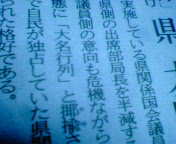 県
実施している県関係国会議員
県側の出席部局長を半減す
議員側の意向も危機ながら
態に「大名行列」と揶揄さ
で自民が独占していた県関
られた格好である。